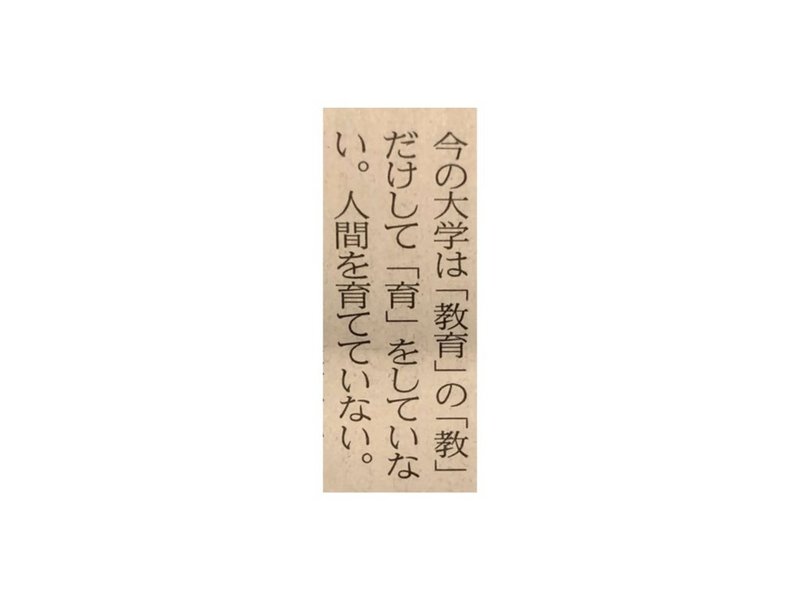 今の大学は「教育」の「教」
だけして「育」をしていな
い。人間を育てていない。